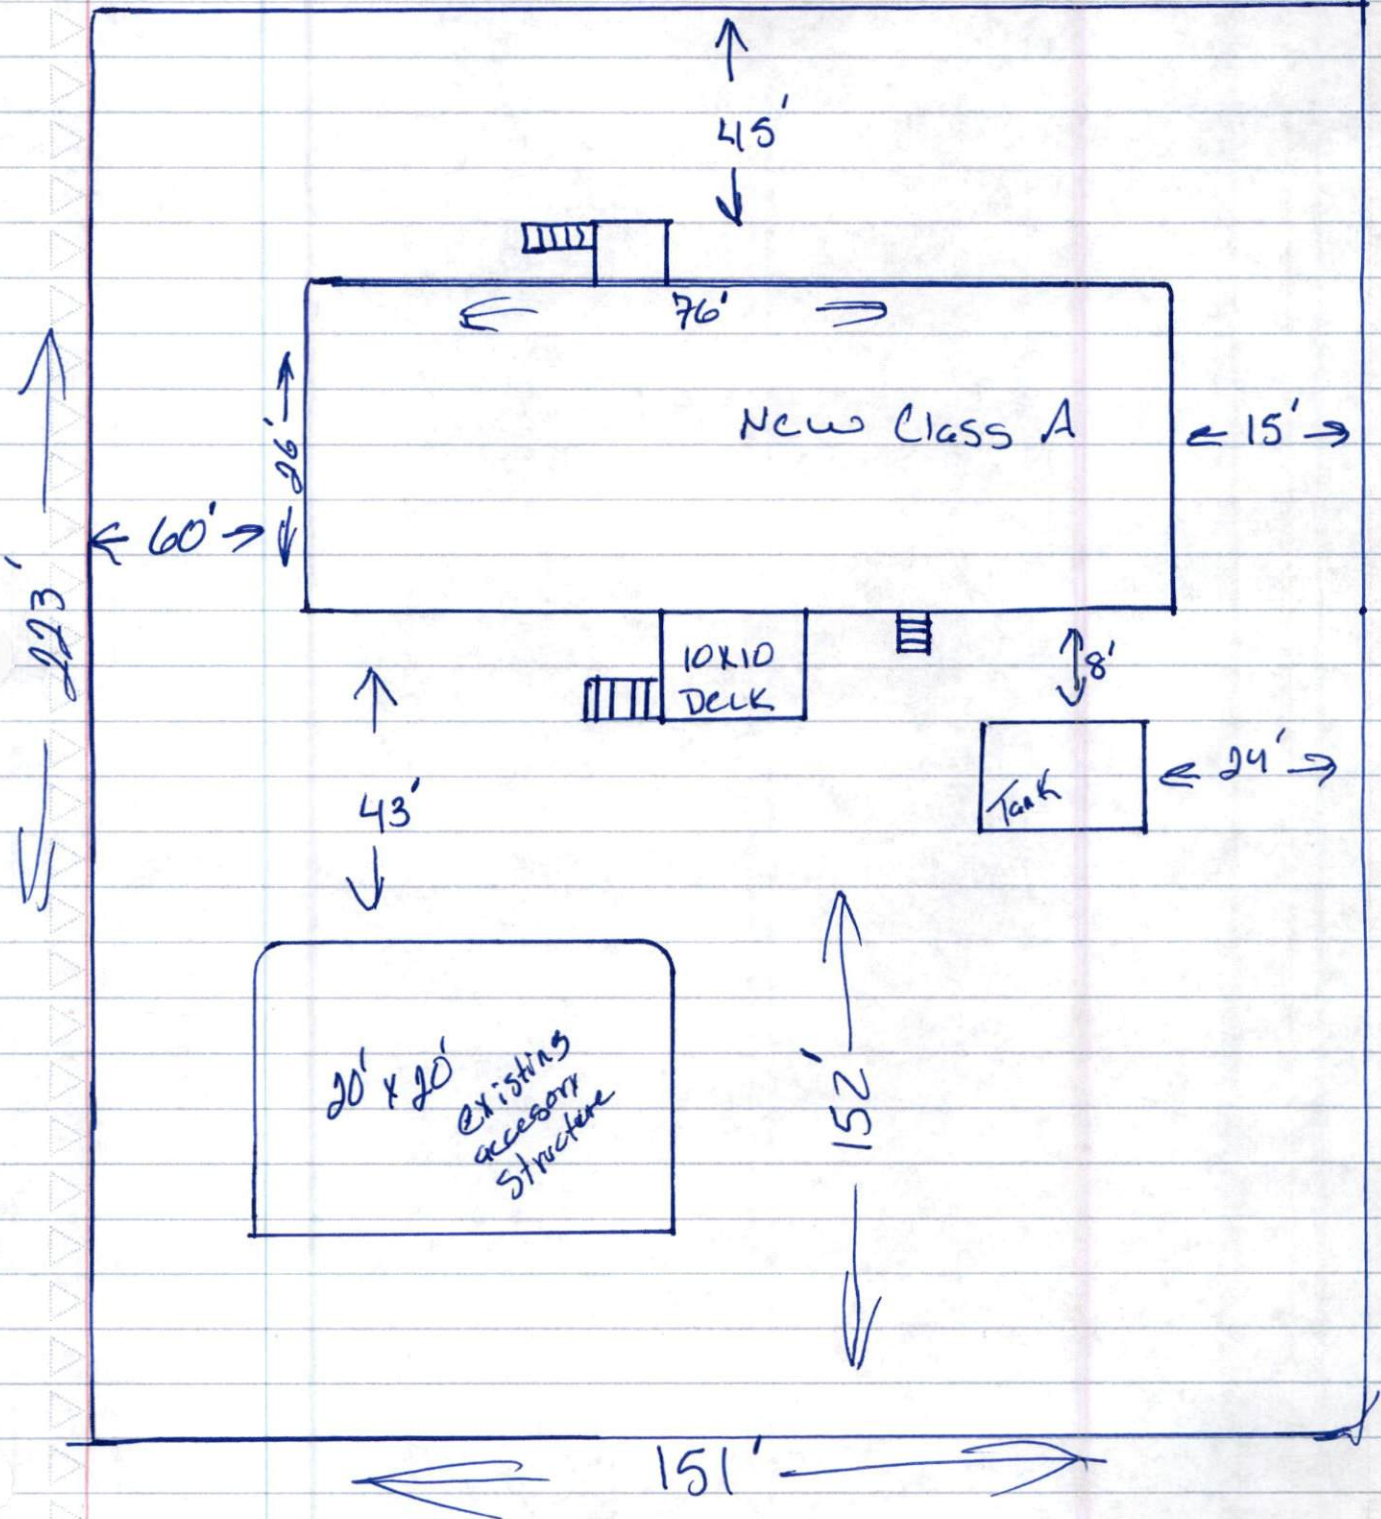 45'
76'
New Class A
26'
15'
60'
223'
10x10
Deck
8'
Tank
24'
43'
20' x 20'
existing
accesory
structure
152'
151'